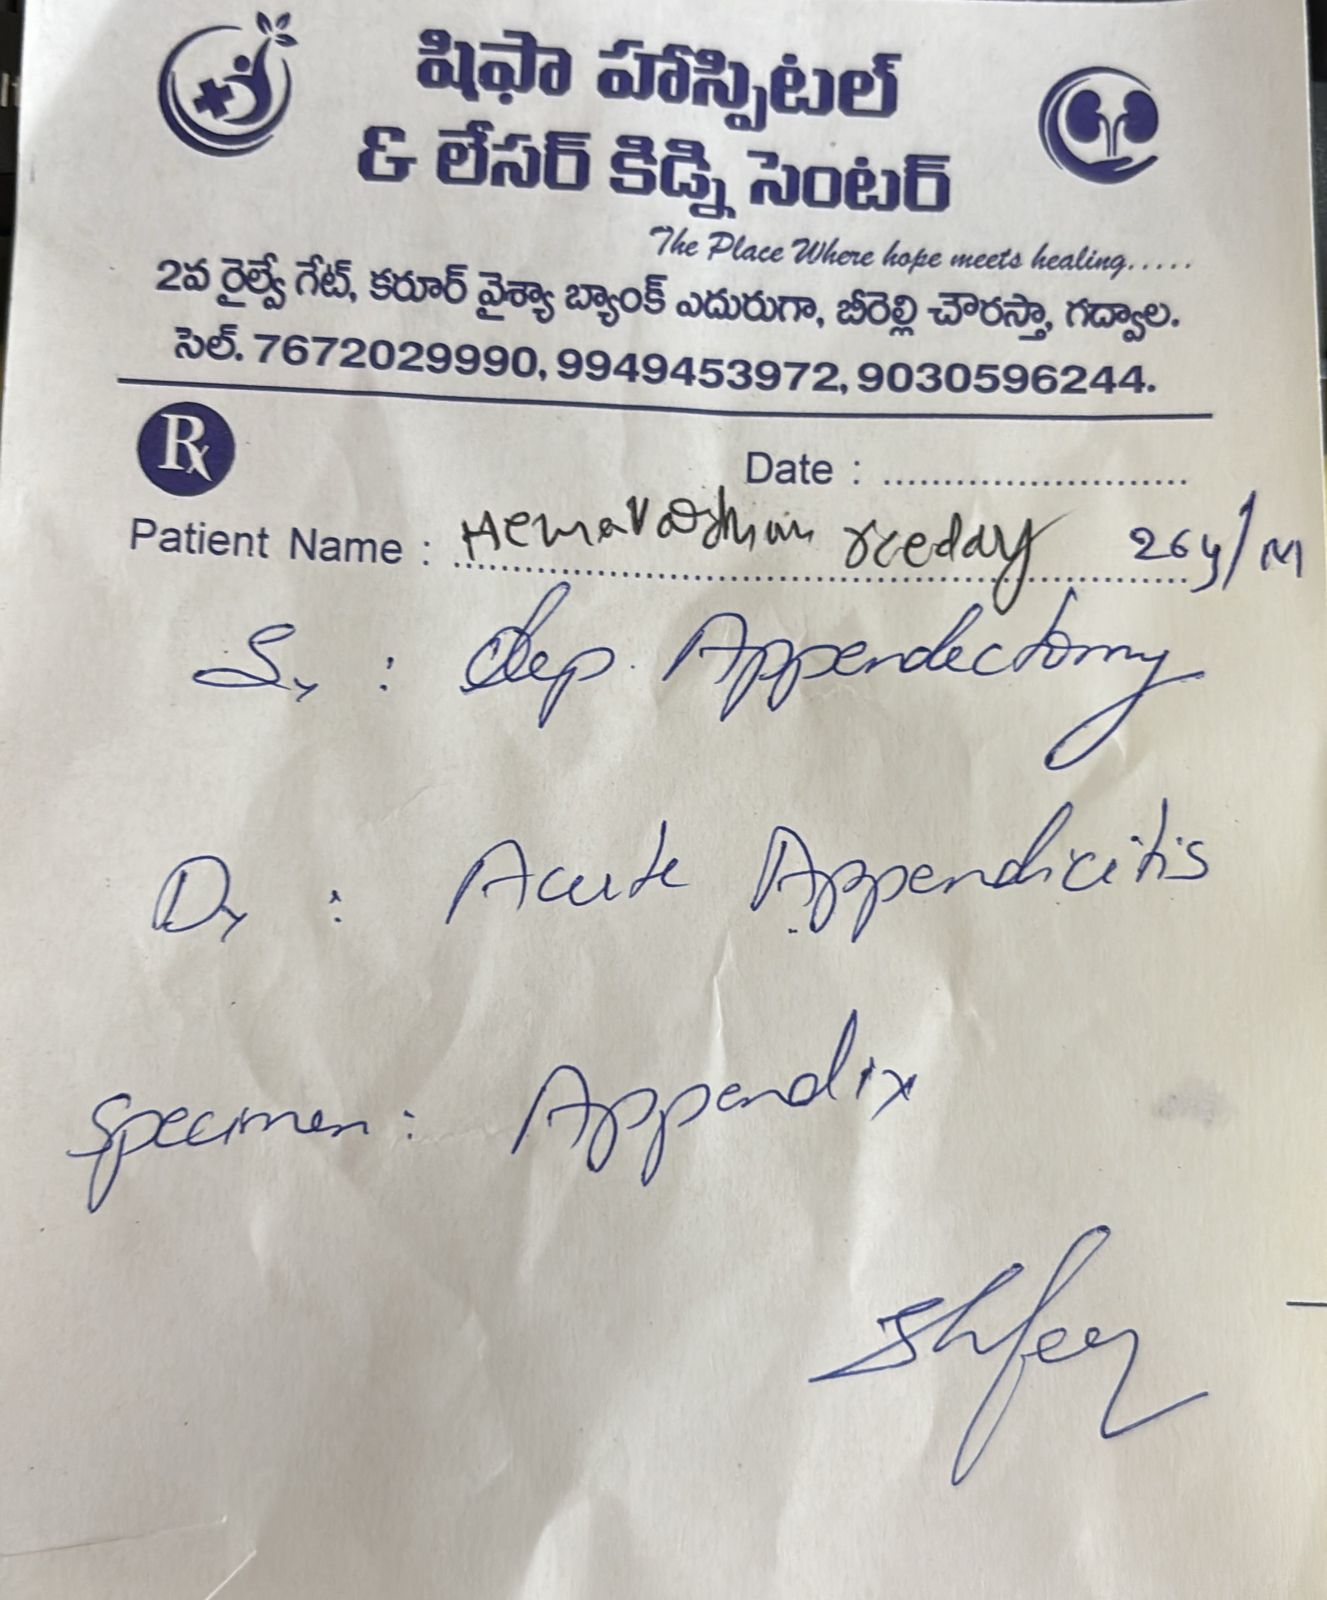 షిఫా హాస్పిటల్
& లేసర్ కిడ్ని సెంటర్
The Place Where hope meets healing.....
2వ రైల్వే గేట్, కరూర్ వైశ్యా బ్యాంక్ ఎదురుగా, బీరెల్లి చౌరస్తా, గద్వాల.
సెల్. 7672029990, 9949453972, 9030596244.
Rx
Date :
Patient Name : Hemavardhan reeddy 26y/M
Sx : Lap. Appendectomy
Dx : Acute Appendicitis
Specimen : Appendix